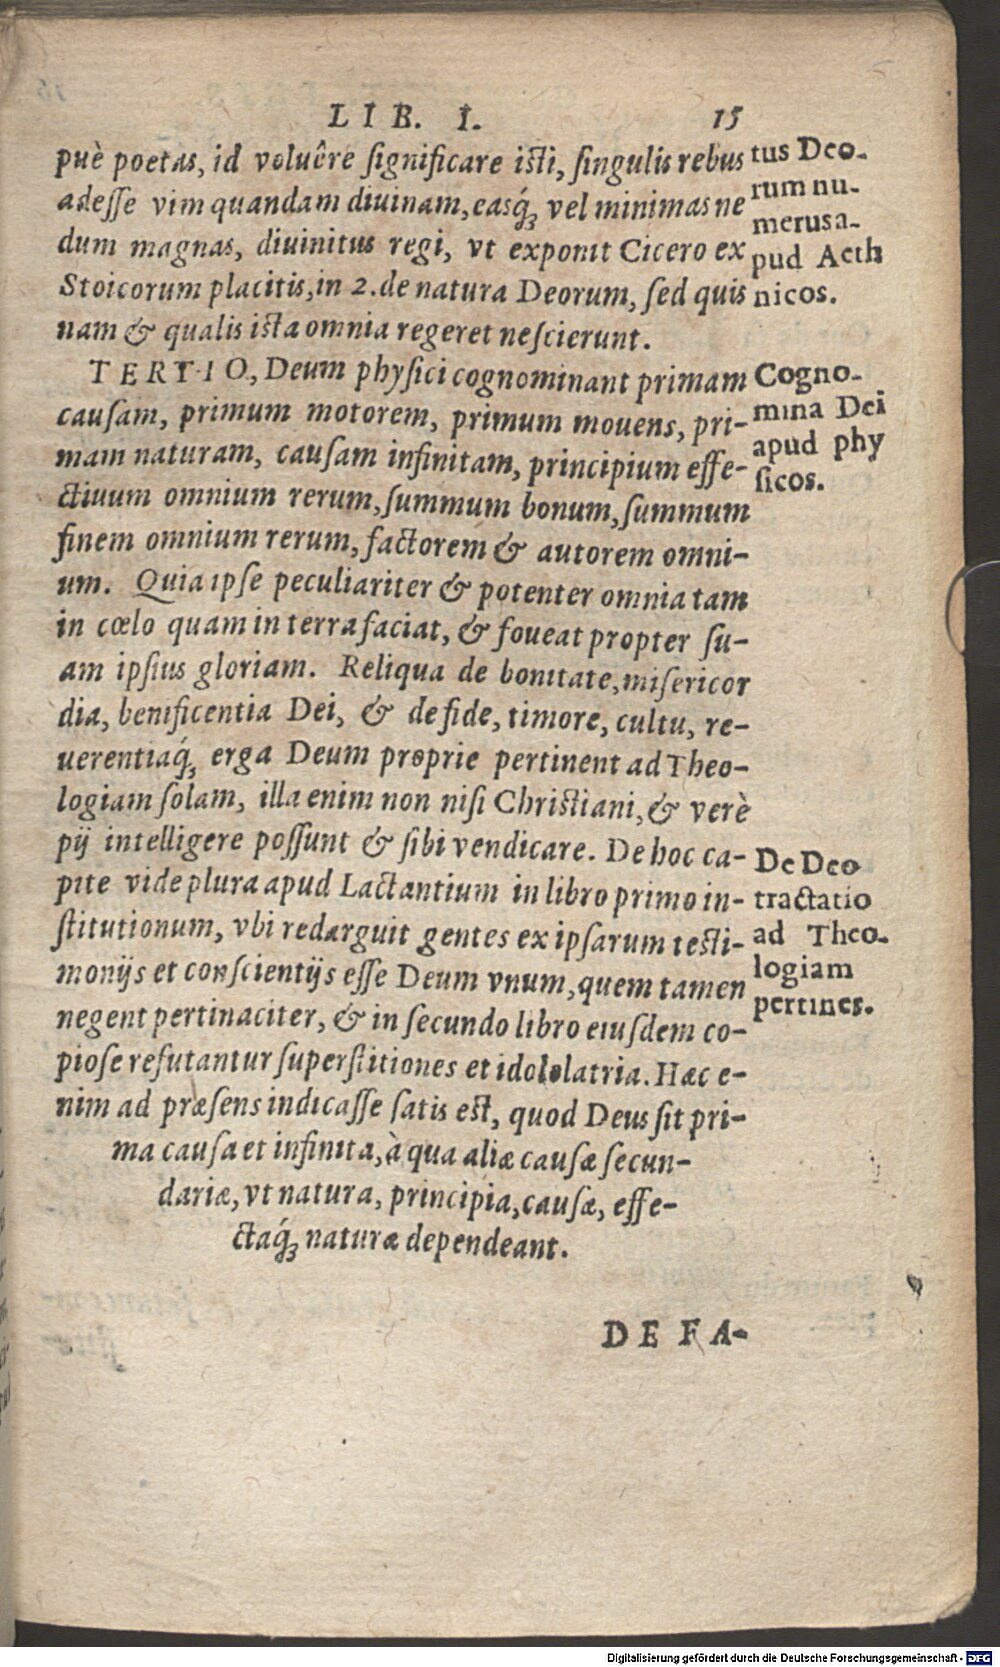 LIB. I. 15
puè poetas, id voluêre ſignificare iſti, ſingulis rebus
adeſſe vim quandam diuinam, easq́ꝫ vel minimas ne
dum magnas, diuinitus regi, vt exponit Cicero ex
Stoicorum placitis, in 2. de natura Deorum, ſed quis
nam & qualis iſta omnia regeret neſcierunt.
tus Deo-
rum nu-
merus a-
pud Aeth
nicos.
TERTIO, Deum phyſici cognominant primam
cauſam, primum motorem, primum mouens, pri-
mam naturam, cauſam infinitam, principium effe-
ctiuum omnium rerum, ſummum bonum, ſummum
finem omnium rerum, factorem & autorem omni-
um. Quia ipſe peculiariter & potenter omnia tam
in cœlo quam in terra faciat, & foueat propter ſu-
am ipſius gloriam. Reliqua de bonitate, miſericor
dia, benificentia Dei, & de fide, timore, cultu, re-
uerentiaq́ꝫ erga Deum proprie pertinent ad Theo-
logiam ſolam, illa enim non niſi Chriſtiani, & verè
pij intelligere poſſunt & ſibi vendicare. De hoc ca-
pite vide plura apud Lactantium in libro primo in-
ſtitutionum, vbi redarguit gentes ex ipſarum teſti-
monijs et conſcientijs eſſe Deum vnum, quem tamen
negent pertinaciter, & in ſecundo libro eiuſdem co-
pioſe refutantur ſuperſtitiones et idololatria. Hæc e-
nim ad præſens indicaſſe ſatis eſt, quod Deus ſit pri-
ma cauſa et infinita, à qua aliæ cauſæ ſecun-
dariæ, vt natura, principia, cauſæ, effe-
ctaq́ꝫ naturæ dependeant.
Cogno-
mina Dei
apud phy
ſicos.
De Deo
tractatio
ad Theo-
logiam
pertines.
DE FA-
Digitalisierung gefördert durch die Deutsche Forschungsgemeinschaft - DFG